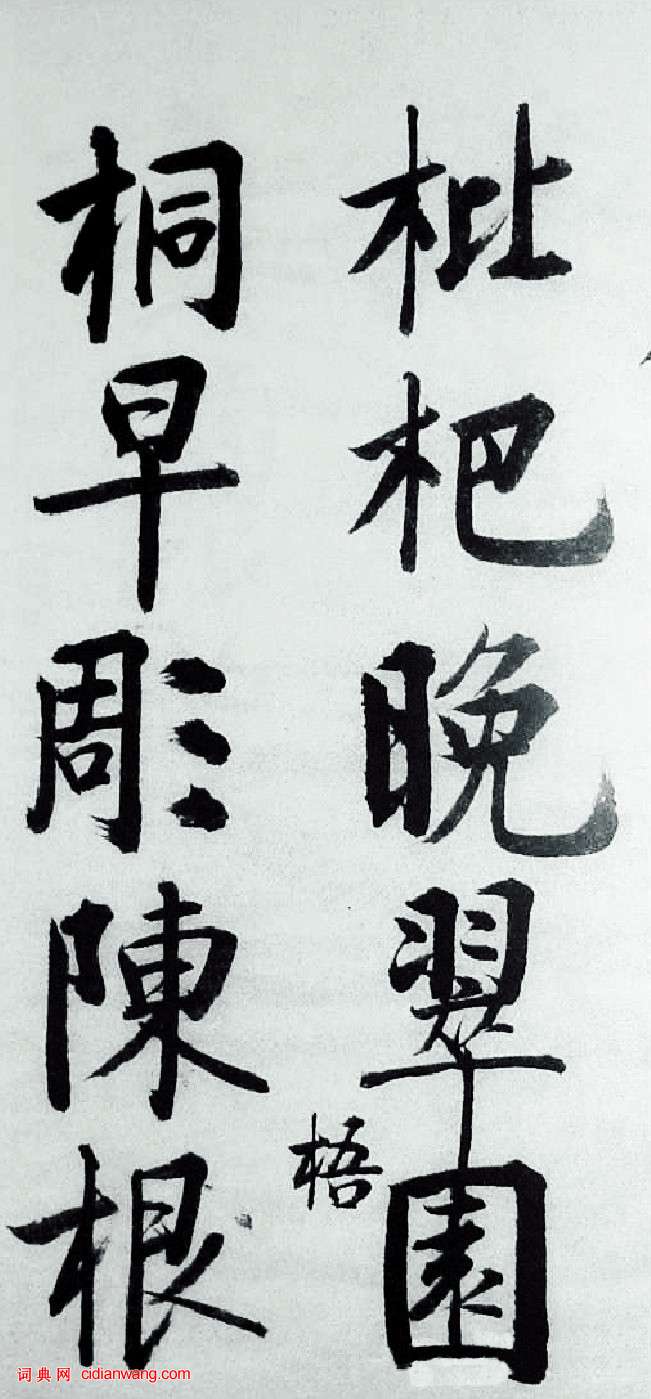 枇杷晚翠園
梧
桐早彫陳根
词典网 cidianwang.com